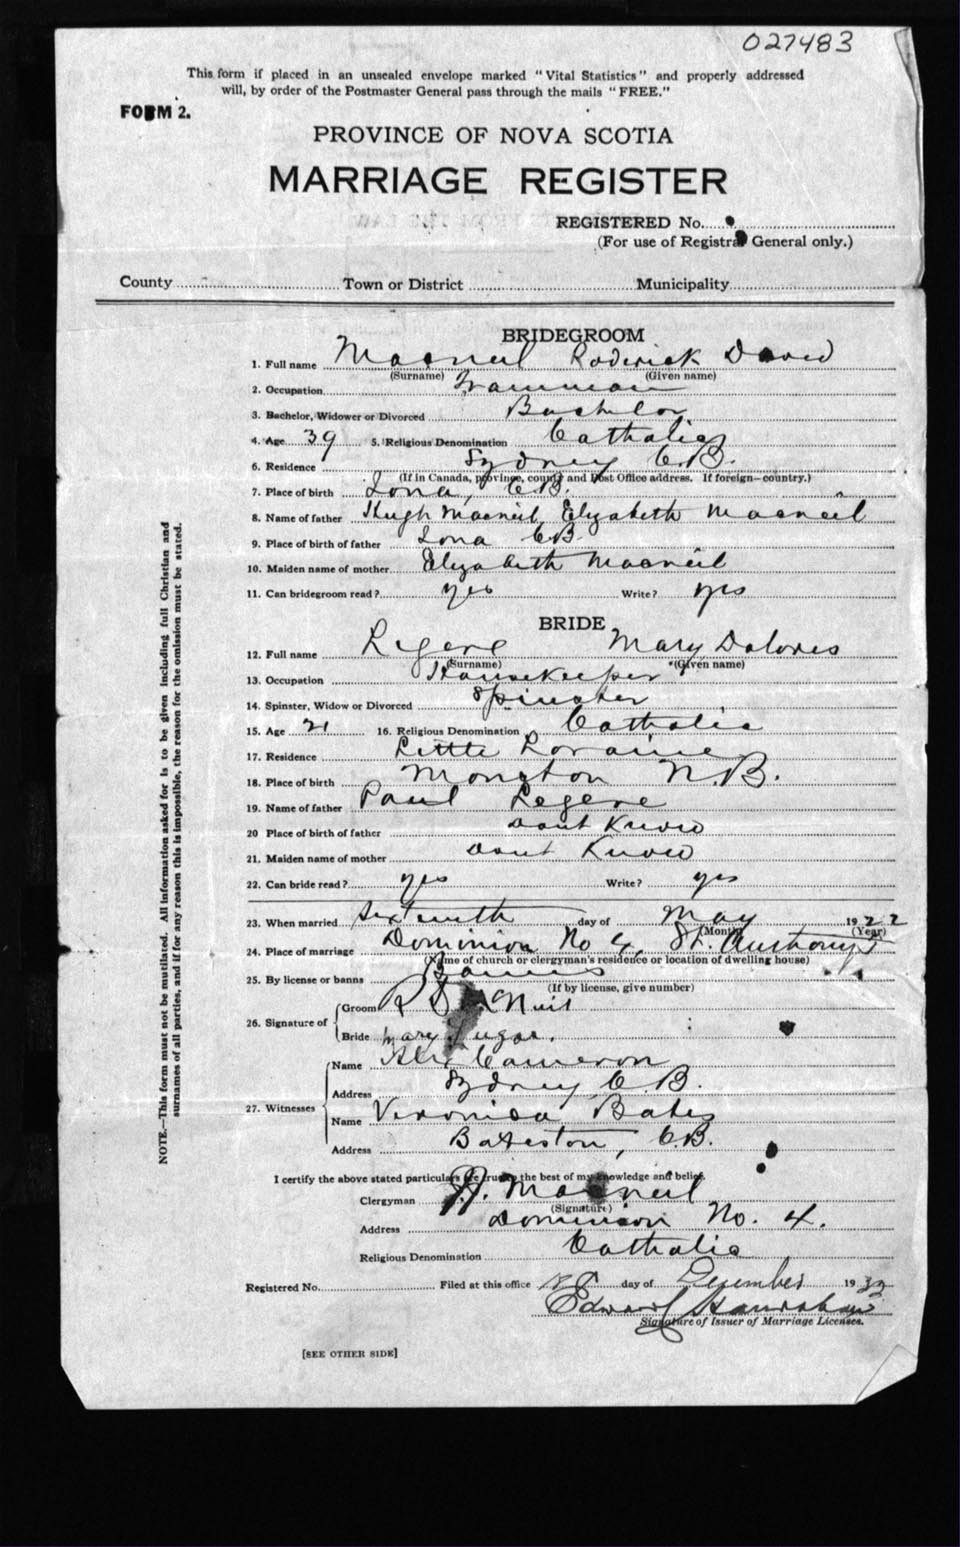 027483
This form if placed in an unsealed envelope marked "Vital Statistics" and properly addressed
will, by order of the Postmaster General pass through the mails "FREE."
FORM 2.
PROVINCE OF NOVA SCOTIA
MARRIAGE REGISTER
REGISTERED No.
(For use of Registrar General only.)
County Town or District Municipality
BRIDEGROOM
1. Full name Macneil Roderick David
(Surname) (Given name)
2. Occupation Trainman
3. Bachelor, Widower or Divorced Bachelor
4. Age 39 5. Religious Denomination Catholic
6. Residence Sydney C.B.
(If in Canada, province, county and Post Office address. If foreign—country.)
7. Place of birth Iona, C.B.
8. Name of father Hugh Macneil Elizabeth Macneil
9. Place of birth of father Iona C.B.
10. Maiden name of mother Elizabeth Macneil
11. Can bridegroom read? yes Write? yes
BRIDE
12. Full name Legere Mary Dolores
(Surname) (Given name)
13. Occupation Housekeeper
14. Spinster, Widow or Divorced Spinster
15. Age 21 16. Religious Denomination Catholic
17. Residence Little Loraine
18. Place of birth Moncton N.B.
19. Name of father Paul Legere
20 Place of birth of father dont Know
21. Maiden name of mother dont Know
22. Can bride read? yes Write? yes
23. When married sixteenth day of May 1922
(Month) (Year)
24. Place of marriage Dominion No 4, St. Anthony's
(Name of church or clergyman's residence or location of dwelling house)
25. By license or banns Banns
(If by license, give number)
26. Signature of
Groom R D Neil
Bride Mary
27. Witnesses
Name Alex Cameron
Address Sydney C.B.
Name Veronica Bates
Address Bateston, C.B.
I certify the above stated particulars are true to the best of my knowledge and belief.
Clergyman Macneil
(Signature)
Address Dominion No. 4.
Religious Denomination Catholic
Registered No. Filed at this office day of December 1932
Edward
Signature of Issuer of Marriage Licenses.
[SEE OTHER SIDE]
NOTE.—This form must not be mutilated. All information asked for is to be given including full Christian and
surnames of all parties, and if for any reason this is impossible, the reason for the omission must be stated.